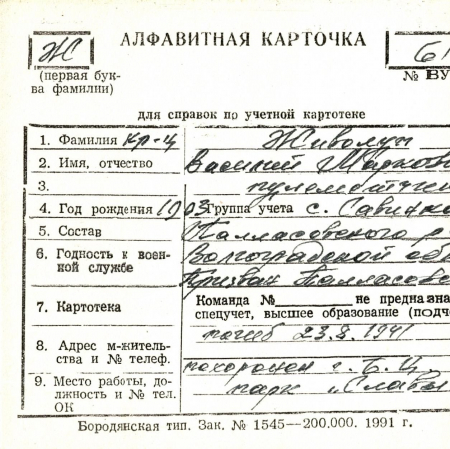 Ж АЛФАВИТНАЯ КАРТОЧКА 61
(первая бук-
ва фамилии) № ВУ
для справок по учетной картотеке
1. Фамилия кр-ц Живолуп
2. Имя, отчество Василий Марков
3. пулеметчик
4. Год рождения 1903 Группа учета с. Савинка
5. Состав Палласовского р
6. Годность к воен-
ной службе Волгоградской об
Призван Палласов
7. Картотека Команда № не предназна
спецучет, высшее образование (подче
8. Адрес м-житель-
ства и № телеф. погиб 23.8.1941
похоронен г. Б. Ц.
9. Место работы, до-
лжность и № тел.
ОК парк „Славы
Бородянская тип. Зак. № 1545—200.000. 1991 г.